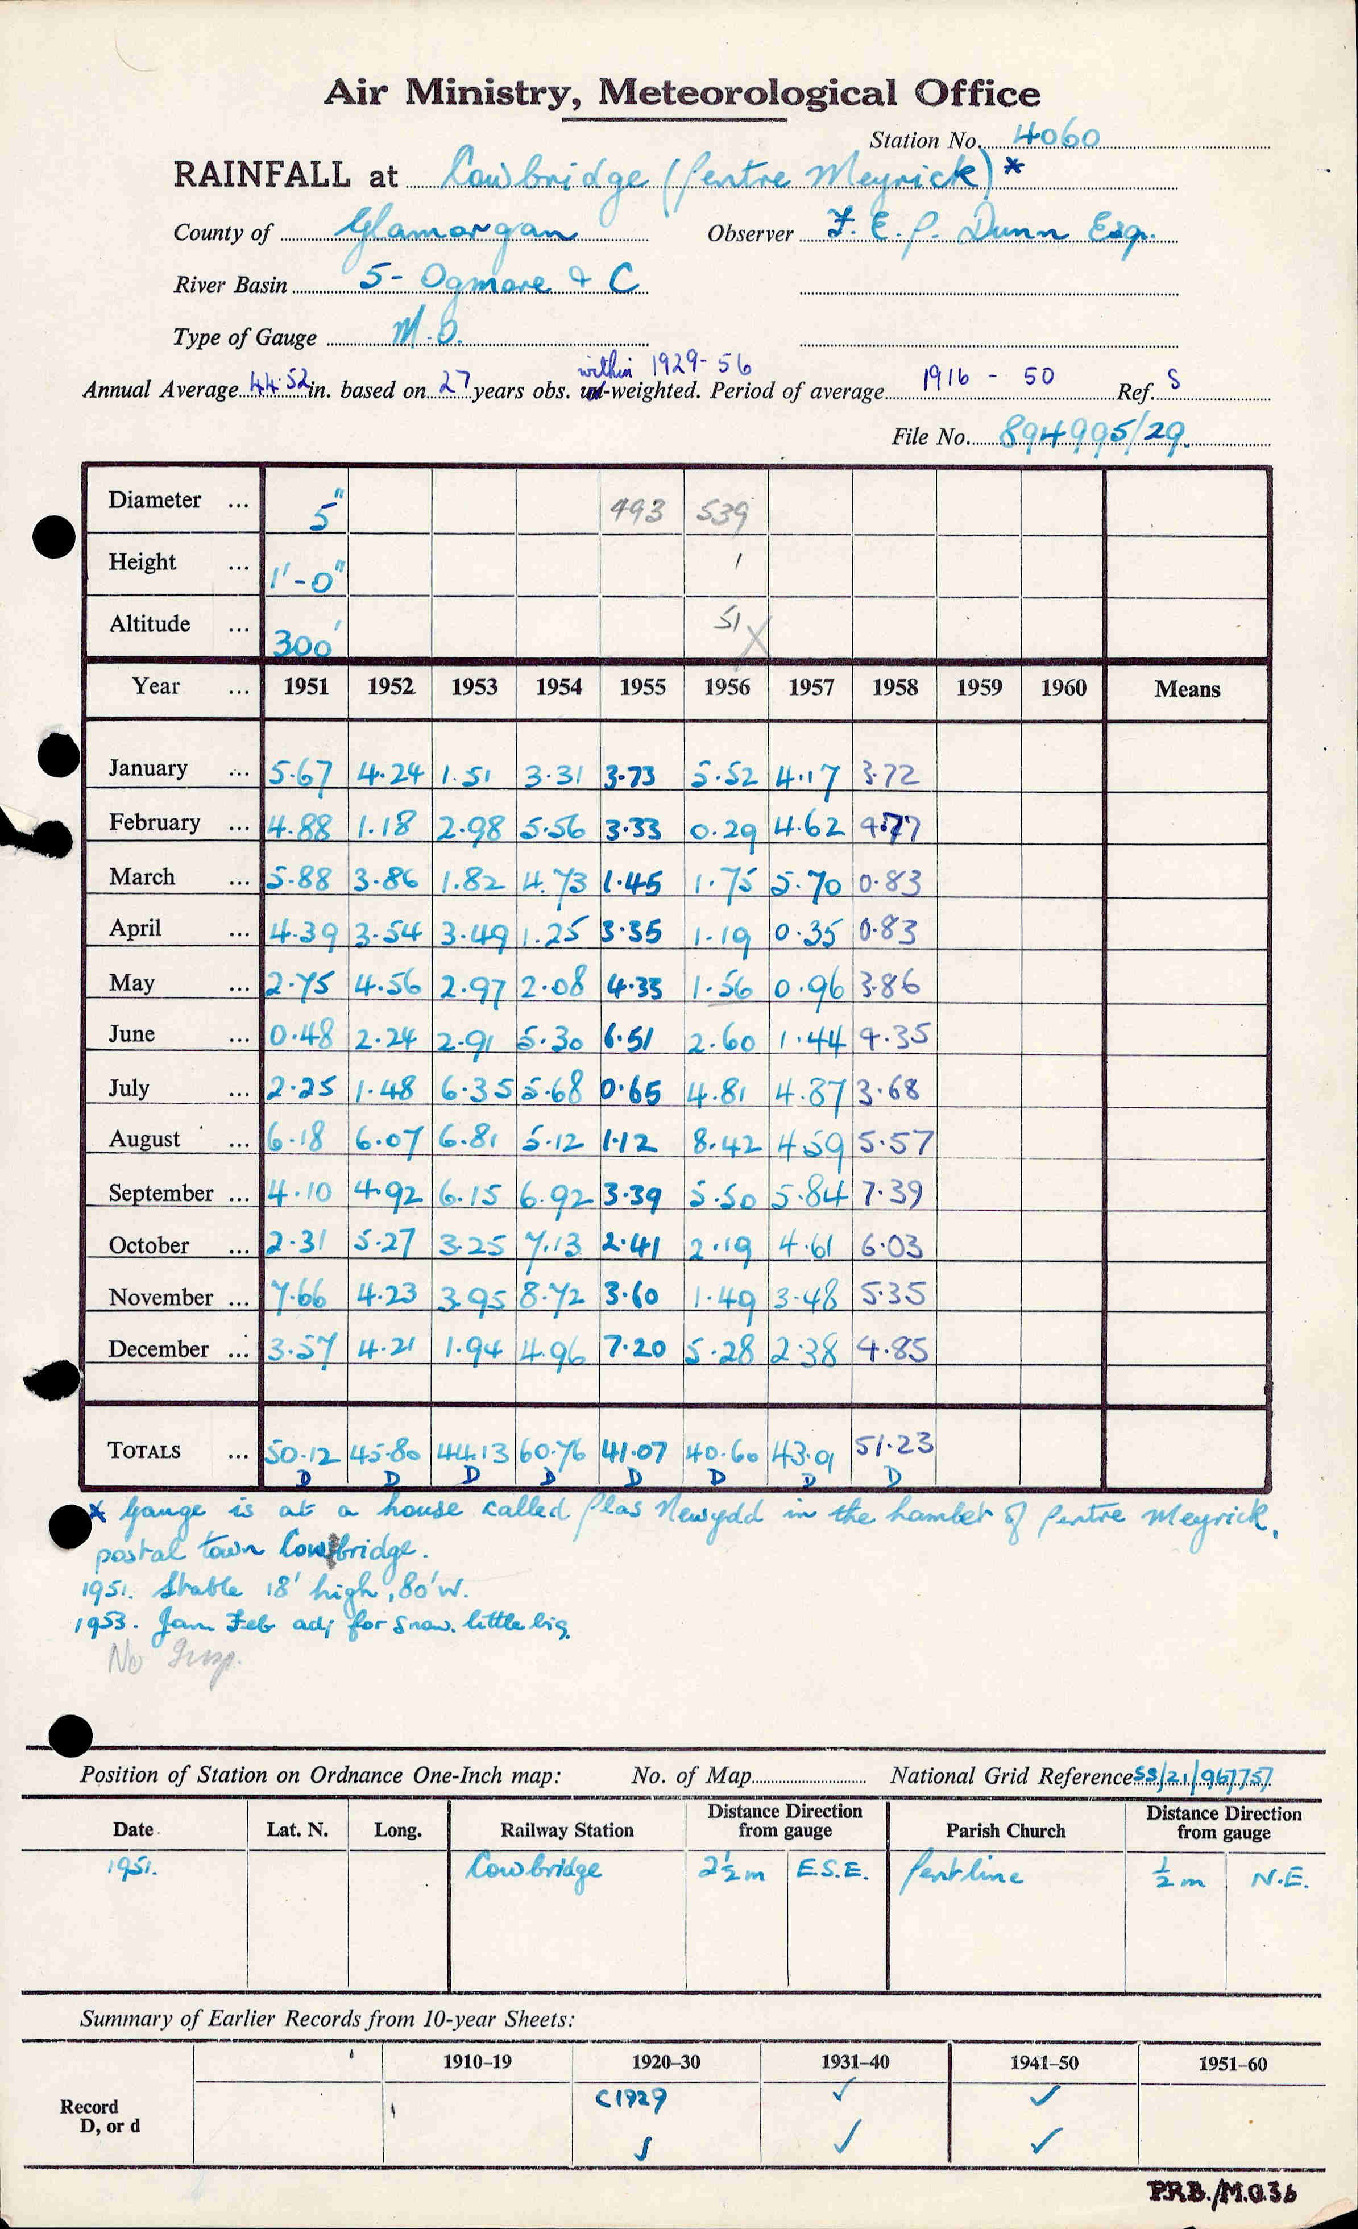 Air Ministry, Meteorological Office
Station No. 4060
RAINFALL at Cowbridge (Pentre Meyrick) *
County of Glamorgan Observer F. E. P. Dunn Esq.
River Basin 5- Ogmore & C
Type of Gauge M.O.
within 1929-56
Annual Average 44.52 in. based on 27 years obs. -weighted. Period of average 1916 - 50 Ref. S
File No. 894995/29.
Diameter ... 5" 493 539
Height ... 1'-0" 1
Altitude ... 300' 51 X
Year ... 1951 1952 1953 1954 1955 1956 1957 1958 1959 1960 Means
January ... 5.67 4.24 1.51 3.31 3.73 5.52 4.17 3.72
February ... 4.88 1.18 2.98 5.56 3.33 0.29 4.62 4.77
March ... 5.88 3.86 1.82 4.73 1.45 1.75 5.70 0.83
April ... 4.39 3.54 3.49 1.25 3.35 1.19 0.35 0.83
May ... 2.75 4.56 2.97 2.08 4.33 1.56 0.96 3.86
June ... 0.48 2.24 2.91 5.30 6.51 2.60 1.44 4.35
July ... 2.25 1.48 6.35 5.68 0.65 4.81 4.87 3.68
August ... 6.18 6.07 6.81 5.12 1.12 8.42 4.59 5.57
September ... 4.10 4.92 6.15 6.92 3.39 5.50 5.84 7.39
October ... 2.31 5.27 3.25 7.13 2.41 2.19 4.61 6.03
November ... 7.66 4.23 3.95 8.72 3.60 1.49 3.48 5.35
December ... 3.57 4.21 1.94 4.96 7.20 5.28 2.38 4.85
TOTALS ... 50.12 45.80 44.13 60.76 41.07 40.60 43.01 51.23
D D D D D D D D
* Gauge is at a house called Plas Newydd in the hamlet of Pentre Meyrick,
postal town Cowbridge.
1951. Stable 18' high, 80'W.
1953. Jan Feb adj for snow. little big
No Insp.
Position of Station on Ordnance One-Inch map: No. of Map National Grid Reference SS/21/967757
Date Lat. N. Long. Railway Station Distance Direction from gauge Parish Church Distance Direction from gauge
1951. Cowbridge 2½m E.S.E. Penlline ½m N.E.
Summary of Earlier Records from 10-year Sheets:
1910-19 1920-30 1931-40 1941-50 1951-60
Record C1929 ✓ ✓
D, or d ✓ ✓ ✓
P.R.B./M.O.36